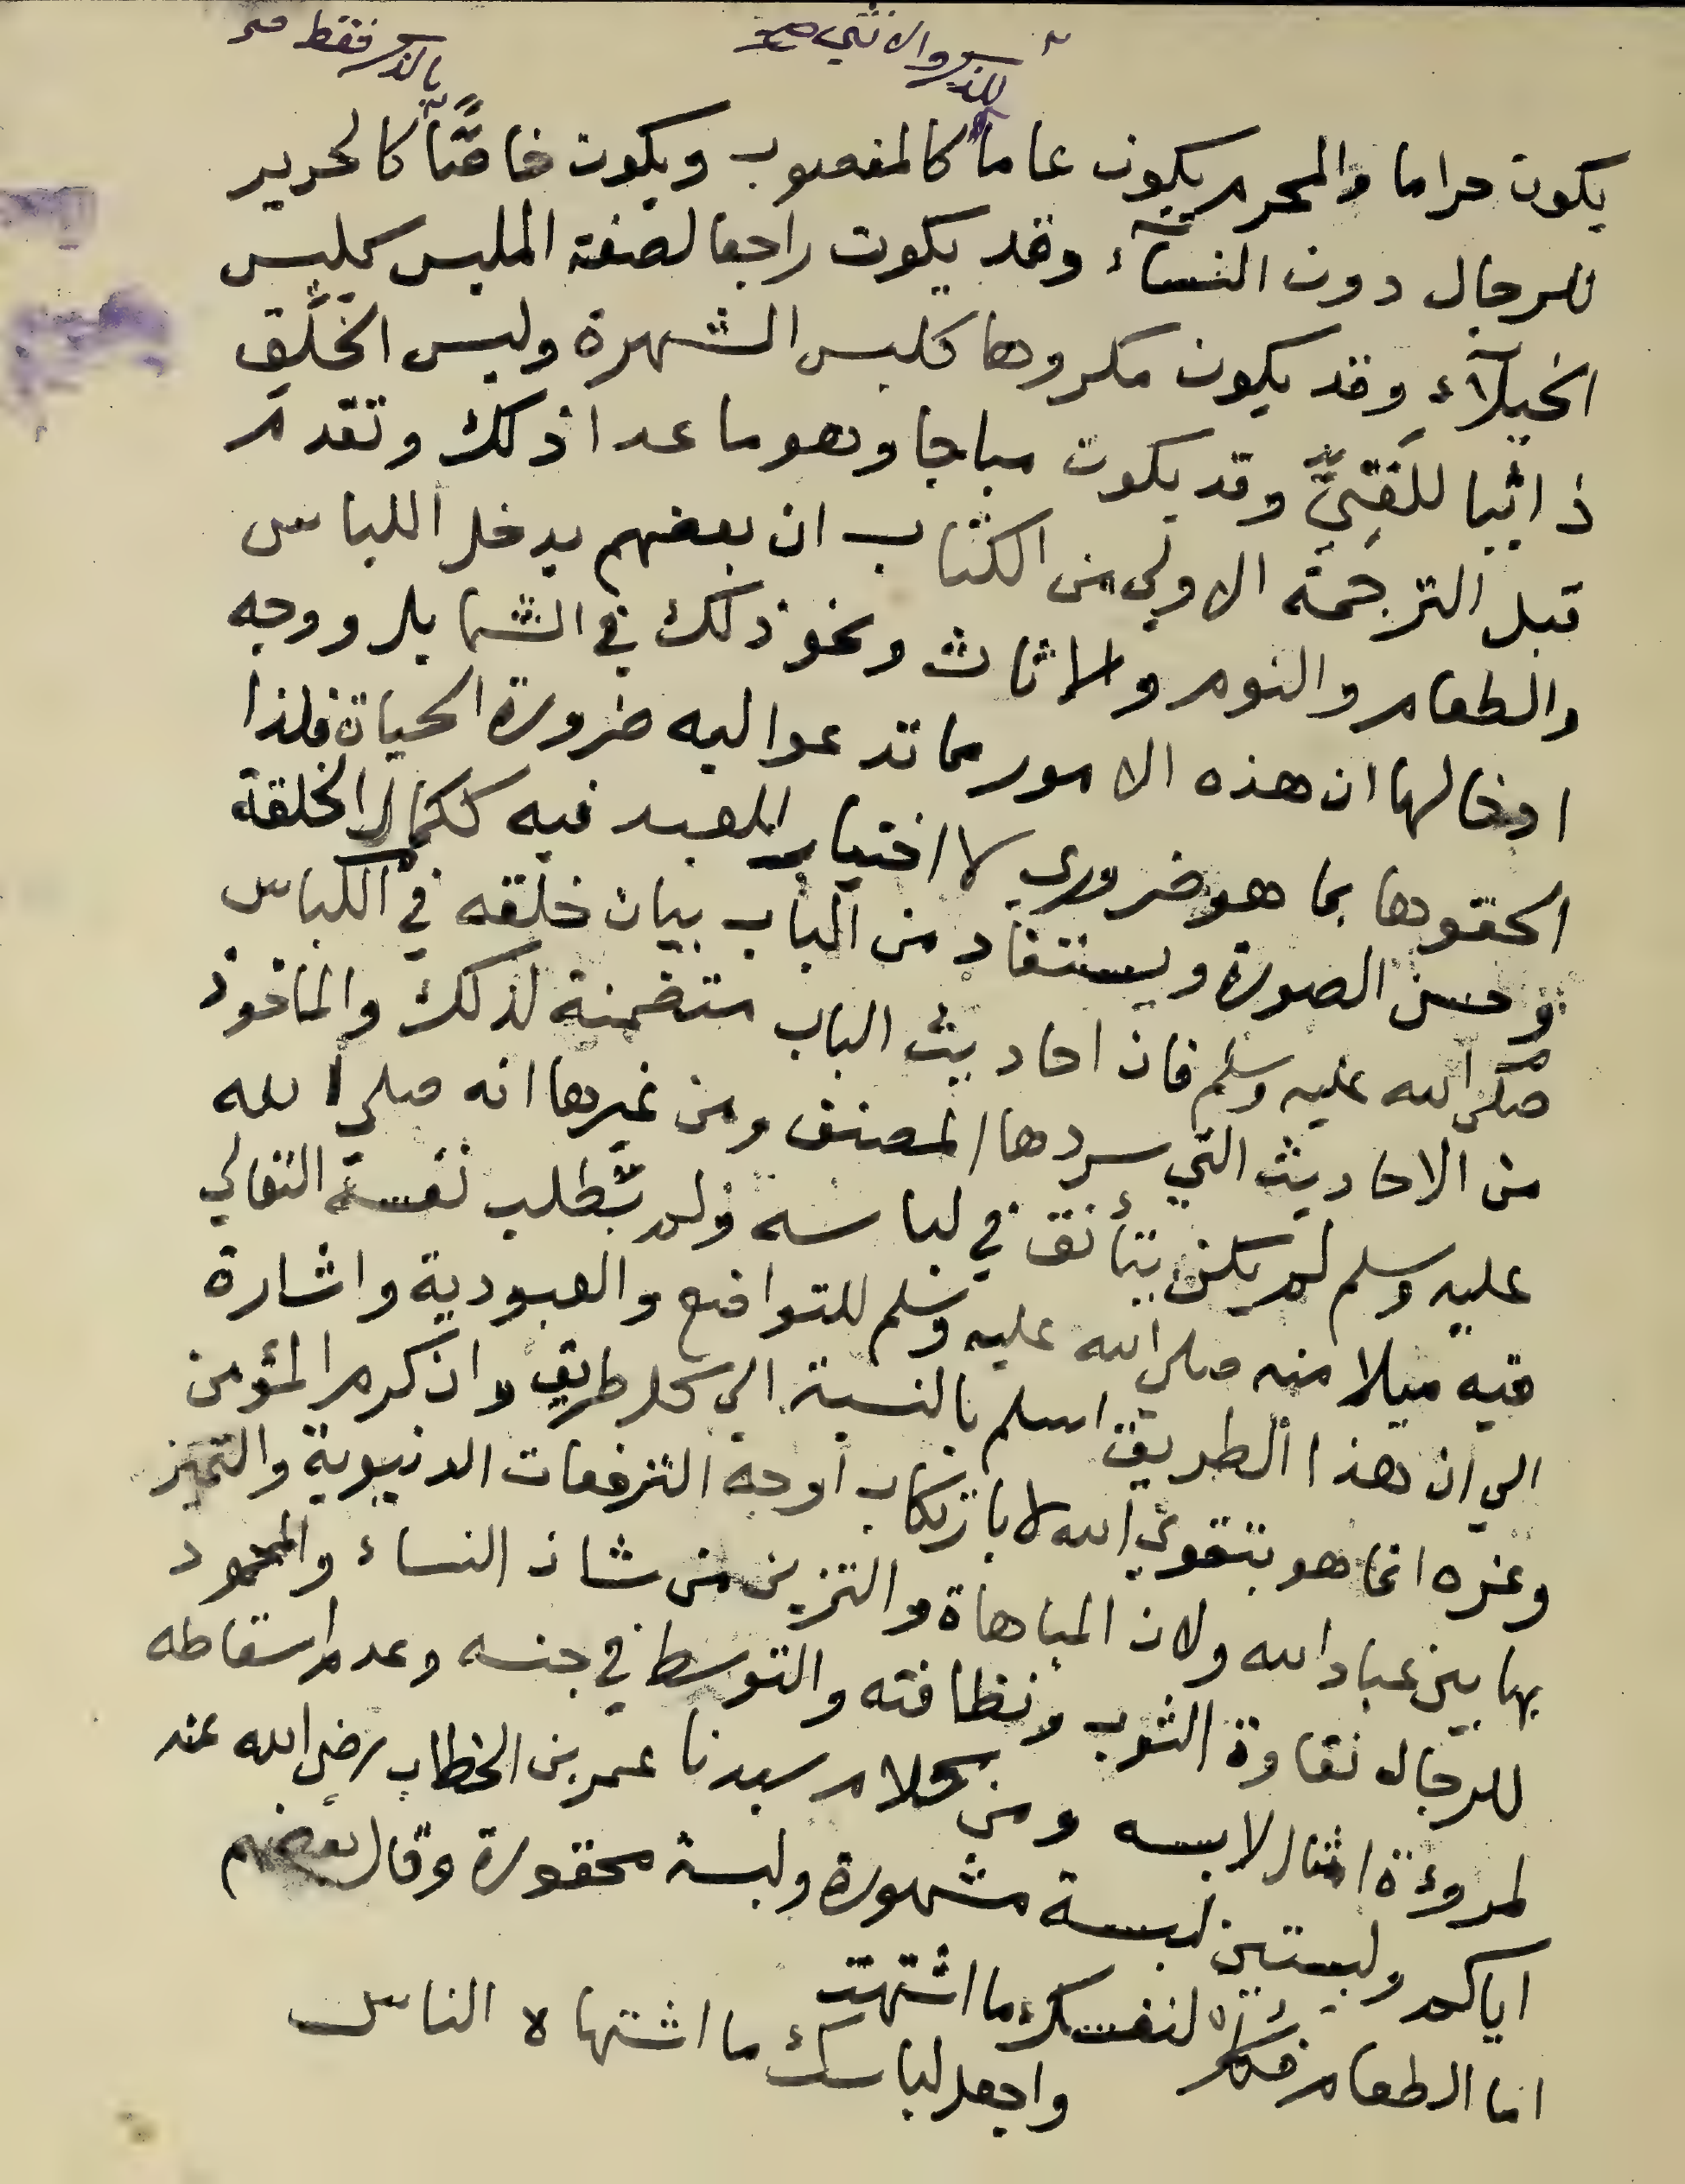 للذكر والانثى صح
بالذكر فقط صح
يكون حراما والمحرم يكون عاما كالمغصوب ويكون خاصًّا كالحرير
للرجال دون النسآء وقد يكون راجعا لصفة الملبس كملبس
الخيلآء وقد يكون مكروها كلبس الشهرة ولبس الخَلَقِ
ذاتيا للغَنِيِّ وقد يكون مباحا وهو ما عدا ذلك وتقدم
قبل الترجمة الاولى من الكتاب ان بعضهم يدخل اللباس
والطعام والنوم والاثاث ونحو ذلك في الشمايل ووجه
ادخالها ان هذه الامور مما تدعوا اليه ضرورة الحياة فلذا
الحقوها بما هو ضروري لا اختيار للعبد فيه ككمال الخلقة
وحسن الصورة ويستفاد من الباب بيان خلقه في اللباس
صلى الله عليه وسلم فان احاديث الباب متضمنة لذلك والماخوذ
من الاحاديث التي سردها المصنف ومن غيرها انه صلى الله
عليه وسلم لم يكن يتأنق في لباسه ولم تطلب نفسه التغالي
فيه ميلا منه صلى الله عليه وسلم للتواضع والعبودية واشارة
الى ان هذا الطريق اسلم بالنسبة الى كل طريق وان كرم المؤمن
وعزه انما هو بتقوى الله لا بارتكاب اوجه الترفعات الدنيوية والتميز
بها بين عباد الله ولان المباهاة والتزين من شان النساء والمحمود
للرجال نقاوة الثوب ونظافته والتوسط في جنسه وعدم اسقاطه
لمروءة امثال لابسه ومن كلام سيدنا عمر بن الخطاب رضي الله عنه
اياكم ولبستين لبسة مشهورة ولبسة محقورة وقال بعضهم
اما الطعام فكل لنفسك ما اشتهت
واجعل لباسك ما اشتهاه الناس